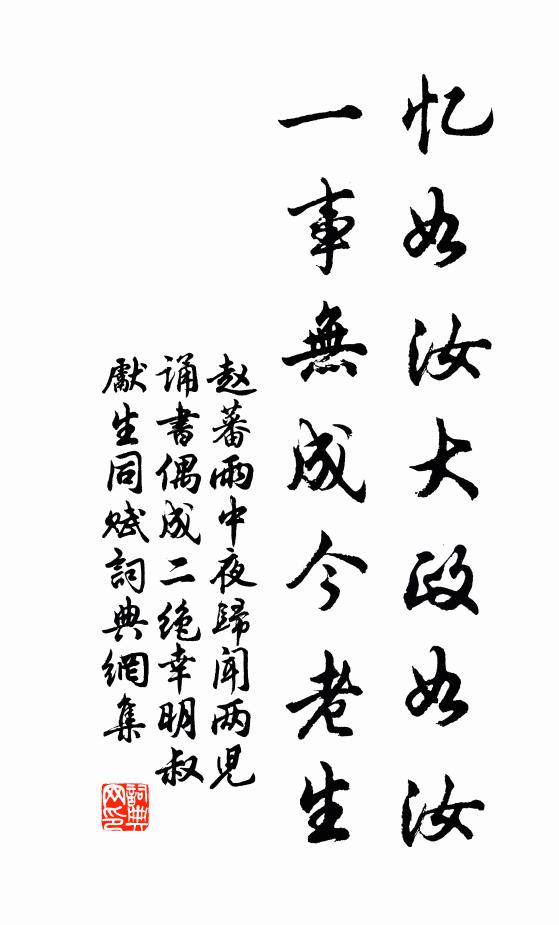 忆如汝大政如汝
一事無成今老生
赵蕃雨中夜歸闻两児
诵书偶成二绝幸明叔
獻生同赋詞典網集
詞典网印